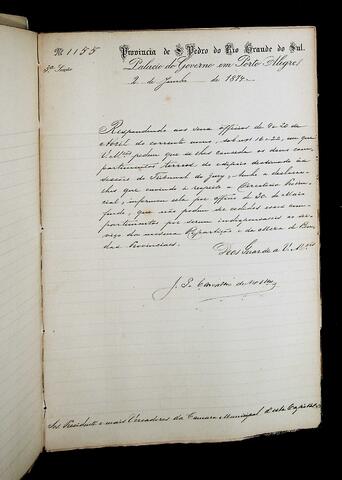 Nº 1155
Provincia de S. Pedro do Rio Grande do Sul.
5ª Secção
Palacio do Governo em Porto Alegre
2 de Junho de 1874.
Respondendo aos seus officios de 9 e 20 de
Abril do corrente anno, sob nos 16 e 22, em que
V.Mces pedem que se lhes conceda os dous com-
partimentos terreos do edificio destinado às
sessões do Tribunal do Jury, tenho a declarar-
lhes que ouvindo a respeito a Directoria Provin-
cial, informou esta por officio de 30 de Maio
findo, que não podem ser cedidos esses com-
partimentos por serem indispensaveis ao ser-
viço da mesma Repartição e da Meza de Ren-
das Provinciaes.
Deos Guarde a V.Mces
Srs. Presidente e mais Vereadores da Camara Municipal desta Capital